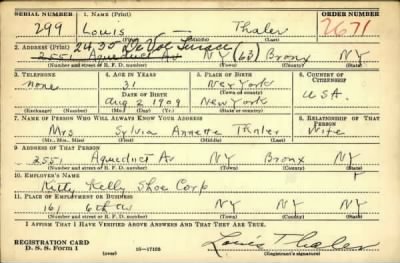 SERIAL NUMBER 1. NAME (Print) ORDER NUMBER
299 Louis — Thaler 2671
(First) (Middle) (Last)
2. ADDRESS (Print) 2430 DeVoe Terrace
2551 Aqueduct Av NY (63) Bronx NY
(Number and street or R. F. D. number) (Town) (County) (State)
3. TELEPHONE 4. AGE IN YEARS 5. PLACE OF BIRTH 6. COUNTRY OF CITIZENSHIP
none 31 New York
DATE OF BIRTH (Town or county) USA.
Aug 2 1909 New York
(Exchange) (Number) (Mo.) (Day) (Yr.) (State or country)
7. NAME OF PERSON WHO WILL ALWAYS KNOW YOUR ADDRESS 8. RELATIONSHIP OF THAT PERSON
Mrs Sylvia Annette Thaler Wife
(Mr., Mrs., Miss) (First) (Middle) (Last)
9. ADDRESS OF THAT PERSON
2551 Aqueduct Av NY Bronx NY
(Number and street or R. F. D. number) (Town) (County) (State)
10. EMPLOYER'S NAME
Kitty Kelly Shoe Corp
11. PLACE OF EMPLOYMENT OR BUSINESS
161 6th Av NY NY
(Number and street or R. F. D. number) (Town) (County) (State)
I AFFIRM THAT I HAVE VERIFIED ABOVE ANSWERS AND THAT THEY ARE TRUE.
REGISTRATION CARD
D. S. S. Form 1 16—17105 Louis Thaler
(Registrant's signature)